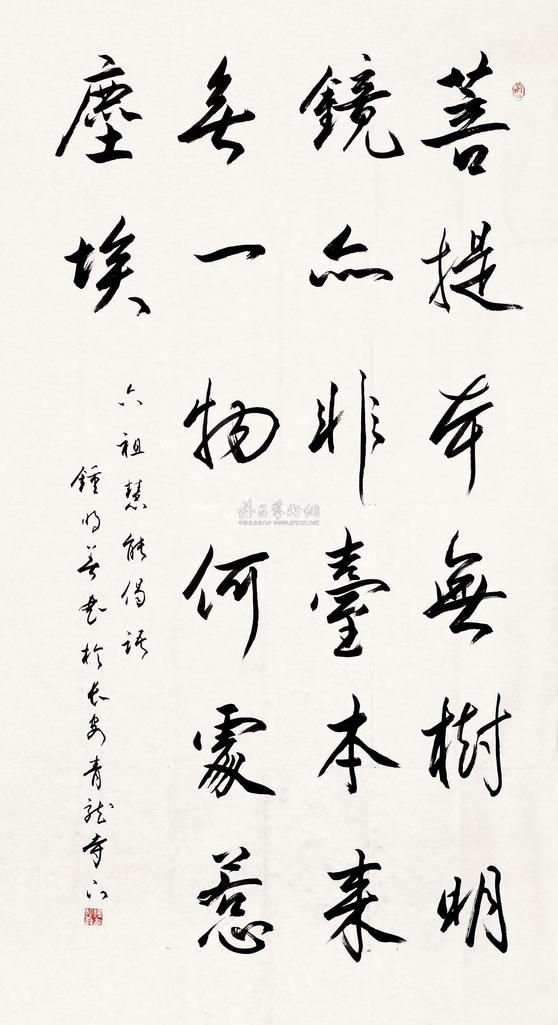 菩提本無樹明
鏡亦非臺本来
無一物何處惹
塵埃
六祖慧能偈語
鍾明善書於长安青龙寺下
www.artron.net